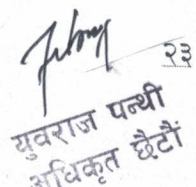 २३
युवराज पन्थी
अधिकृत छैटौं